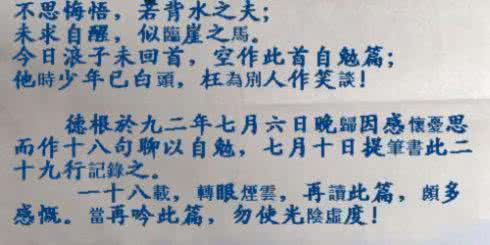 不思悔悟，若背水之夫；
未求自醒，似臨崖之馬。
今日浪子未回首，空作此首自勉篇；
他時少年已白頭，枉為別人作笑談！
德根於九二年七月六日晚歸因感懷憂思
而作十八句聊以自勉，七月十日提筆書此二
十九行記錄之。
一十八載，轉眼煙雲，再讀此篇，頗多
感慨。當再吟此篇，勿使光陰虛度！